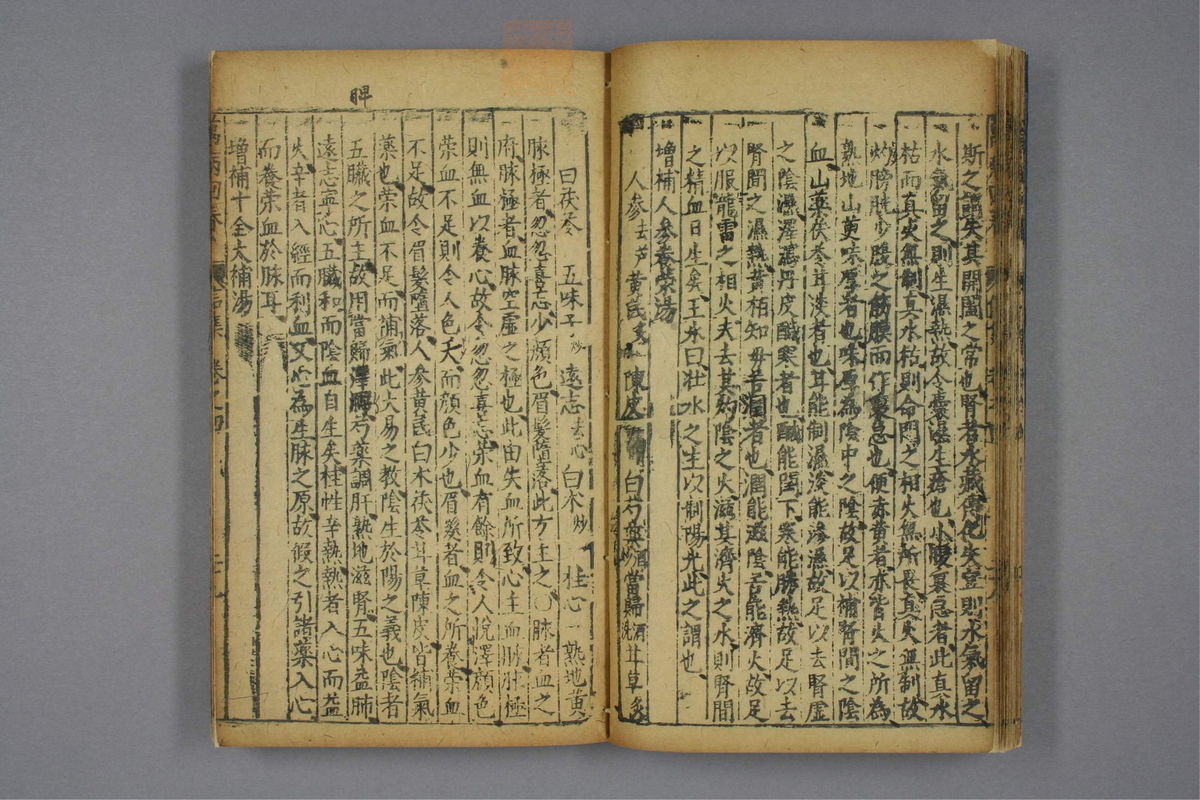 斯之謂失其開闔之常也腎者水藏傳化失宜則水氣留之
水氣留之則生濕熱故令囊癢生瘡也小腹裏急者此真水
枯而真火無制真水枯則命門之相火無所畏真火無制故
灼膀胱少腹之筋膜而作裏急也便赤黄者亦皆火之所為
熟地山萸味厚者也味厚為陰中之陰故足以補腎間之陰
血山藥茯苓甘淡者也甘能制濕淡能滲濕故足以去腎虛
之陰濕澤瀉丹皮鹹寒者也鹹能潤下寒能勝熱故足以去
腎間之濕熱黄栢知毋苦潤者也潤能滋陰苦能濟火故足
以服龍雷之相火夫去其灼陰之火滋其濟火之水則腎間
之精血日生矣王氷曰壯水之主以制陽光此之謂也
增補人參養榮湯
人參去芦 黄芪炙 陳皮 白芍藥 酒炒 當歸酒洗 甘草炙
白茯苓 五味子炒 遠志去心 白术炒 桂心 熟地黄
脉極者忽忽喜忘少顔色眉髮墮落此方主之○脉者血之
府脉極者血脉空虛之極也此由失血所致心主血脉肝極
則無血以養心故令忽忽喜忘榮血有餘則令人悅澤顔色
榮血不足則令人色夭而顔色少也眉髮者血之所養榮血
不足故令眉髮墮落人參黄芪白术茯苓甘草陳皮皆補氣
藥也榮血不足而補氣此大易之教陰生於陽之義也陰者
五臟之所主故用當歸澤脾芍藥調肝熟地滋腎五味益肺
遠志益心五臟和而陰血自生矣桂性辛熱熱者入心而益
火辛者入經而利血又心為生脉之原故假之引諸藥入心
而養榮血於脉耳
增補十全大補湯
脾
萬病回春 卷之四